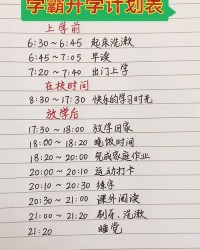 学霸升学计划表
上学前
6:30～6:45 起床洗漱
6:45～7:05 早读
7:20～7:40 出门上学
在校时间
8:30～17:30 快乐的学习时光
放学后
17:30～18:00 放学回家
18:00～18:20 晚饭时间
18:20～20:00 完成家庭作业
20:00～20:10 运动打卡
20:10～20:30 练字
20:30～21:00 课外阅读
21:00～21:20 刷牙、洗漱
21:20 睡觉